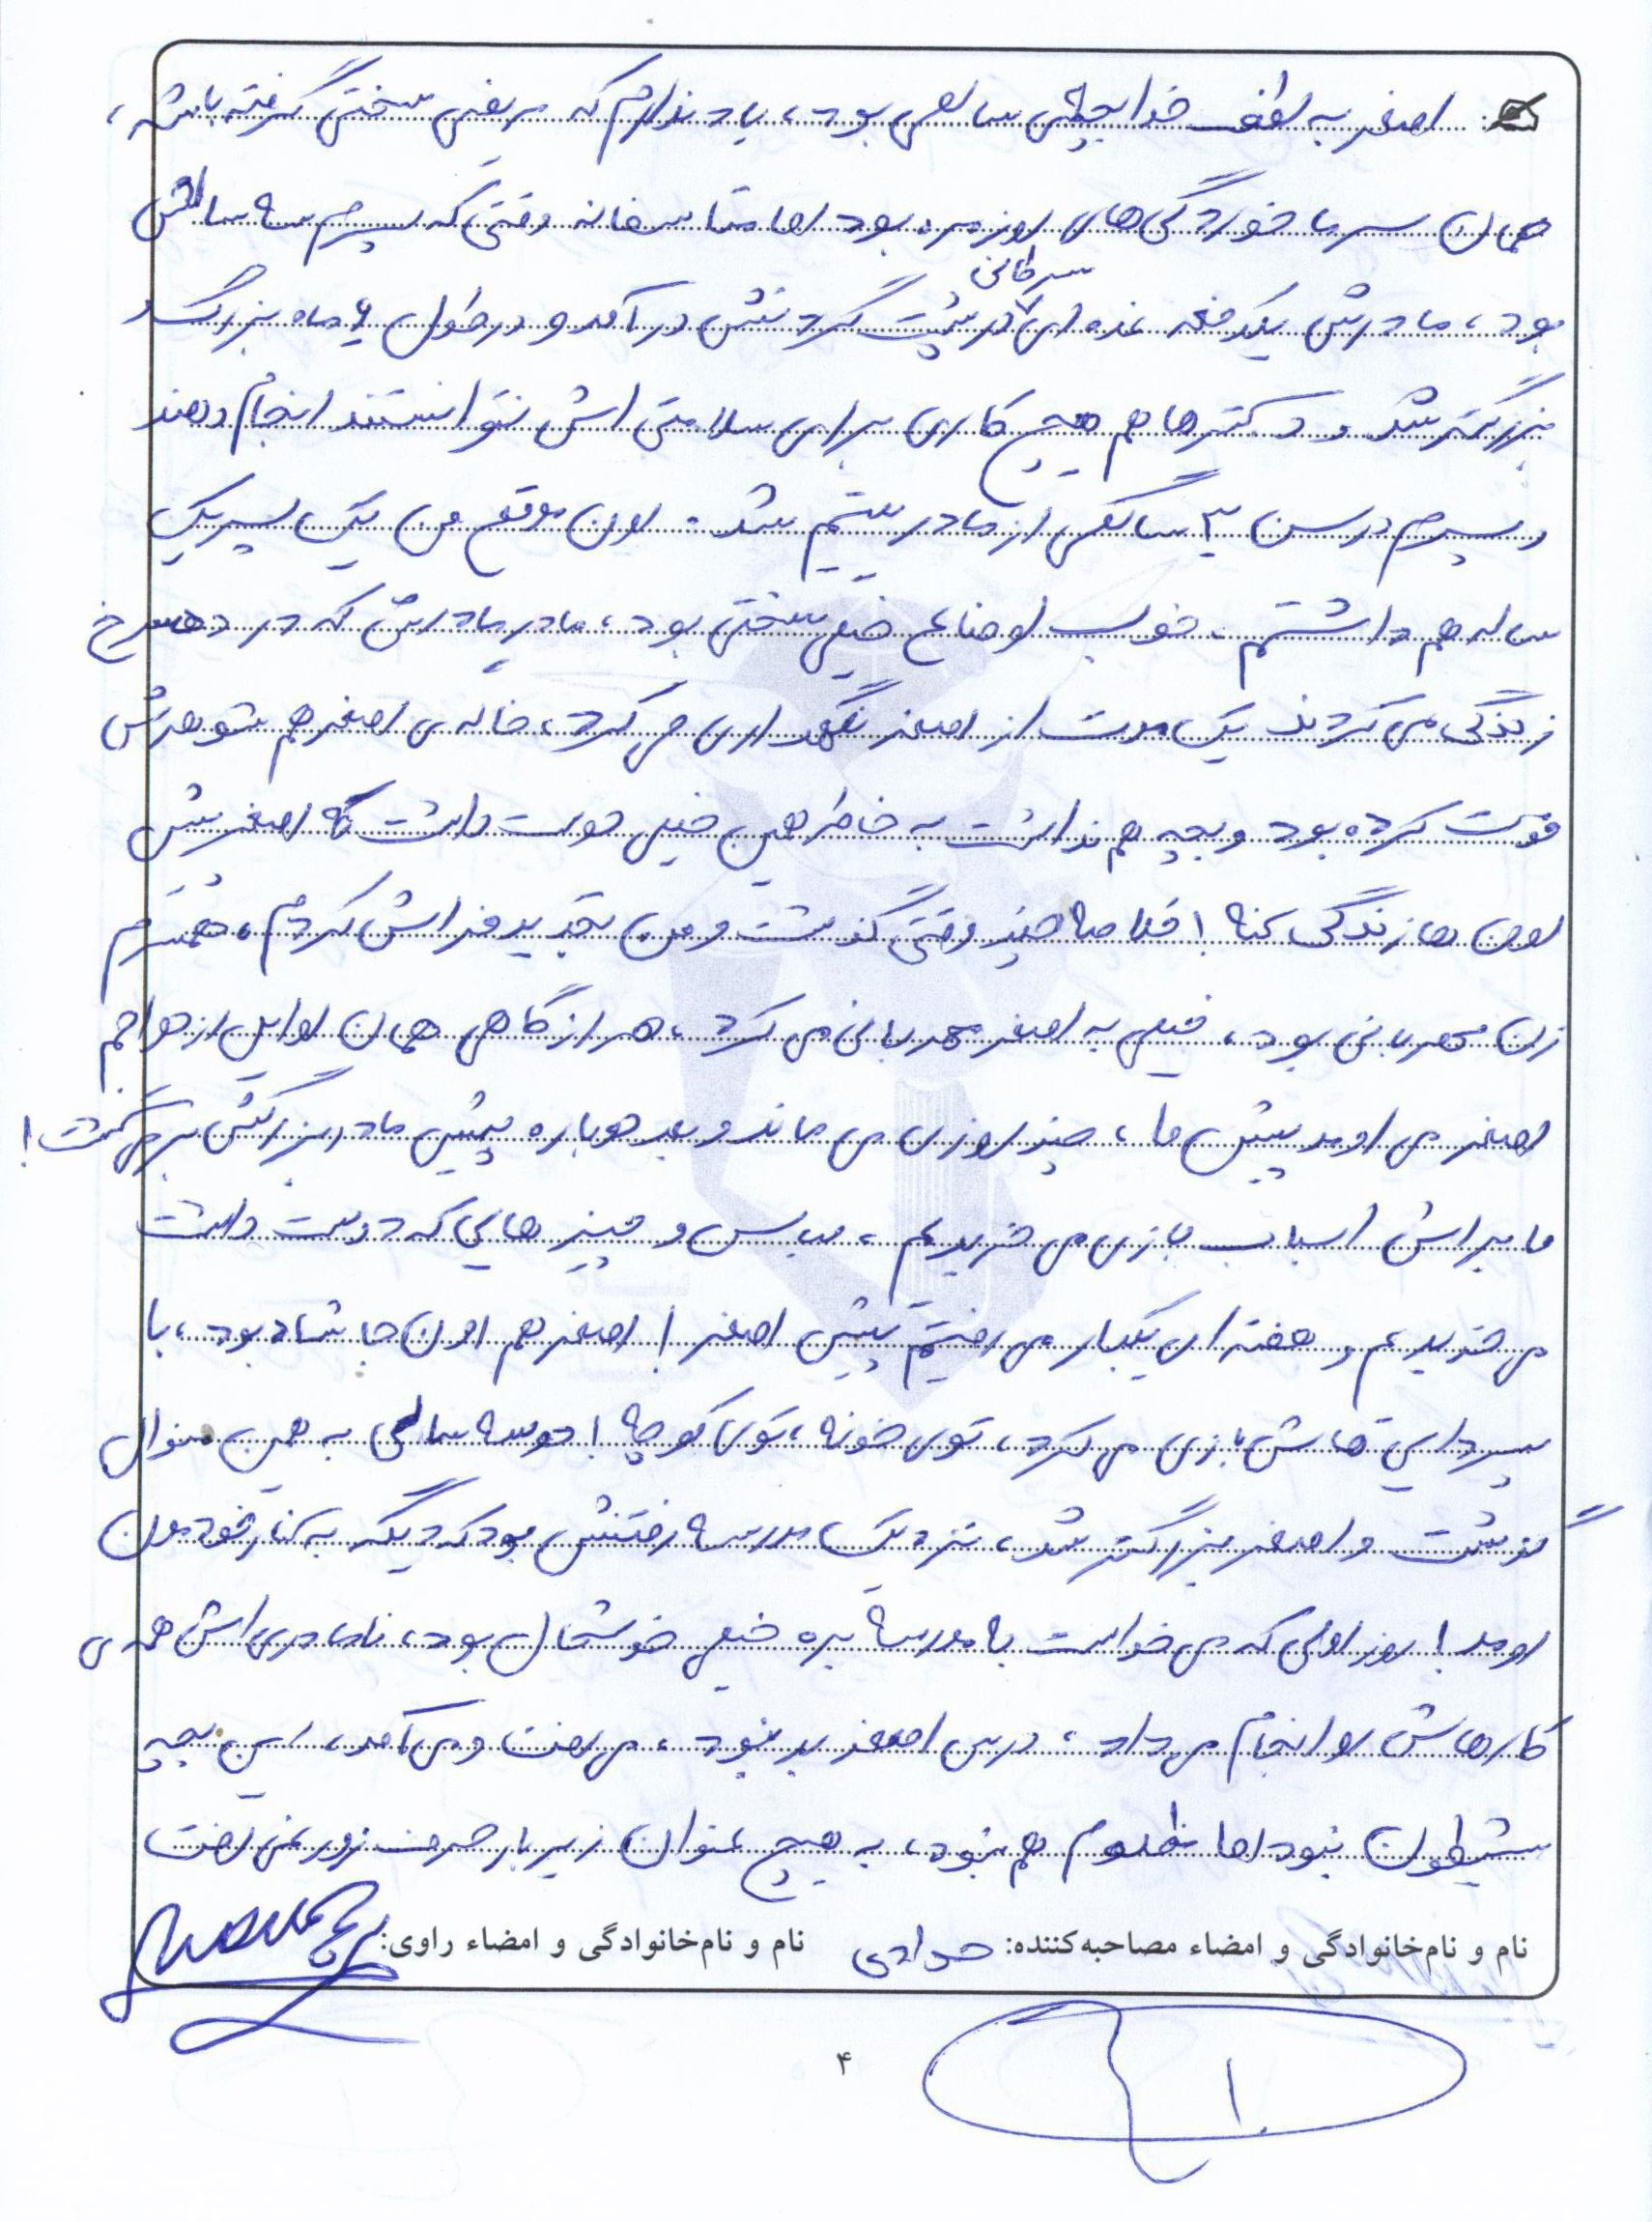 اصغر به لطف خدا بچه‌ی سالمی بود، یاد ندارم که مریضی سختی گرفته باشه،
همان سرما خوردگی‌های روزمره بود اما متاسفانه وقتی که پسرم سه سالش
سرطانی
بود، مادرش یکدفعه غده‌ای در پشت گردنش در آمد و در طول ۶ ماه بزرگ و
بزرگتر شد و دکترها هم هیچ کاری برای سلامتی اش نتوانستند انجام دهند
و پسرم در سن ۳ سالگی از مادر یتیم شد. اون موقع من یک پسر یک
ساله هم داشتم، خوب اوضاع خیلی سختی بود، مادر مادرش که در دهسرخ
زندگی می کردند یک مدت از اصغر نگهداری می کرد، خاله ی اصغر هم شوهرش
فوت کرده بود و بچه هم نداشت به خاطر همین خیلی دوست داشت که اصغر پیش
اون ها زندگی کنه! خلاصه چند وقتی گذشت و من تجدید فراش کردم، همسرم
زن مهربانی بود، خیلی به اصغر مهربانی می کرد، هر از گاهی همان اوایل ازدواجم
اصغر می اومد پیش ما، چند روزی می ماند و بعد دوباره پیش مادربزرگش برمی گشت!
ما براش اسباب بازی می خریدیم، لباس و چیزهایی که دوست داشت
می خریدیم و هفته ای یکبار می رفتیم پیش اصغر! اصغر هم اون جا شاد بود، با
پسردایی هاش بازی می کرد، توی خونه، توی کوچه! دو سه سالی به همین منوال
گذشت و اصغر بزرگتر شد، نزدیک مدرسه رفتنش بود که دیگه به کنار خودمون
اومد! روز اولی که می خواست به مدرسه بره خیلی خوشحال بود، نامادری اش همه ی
کارهاش رو انجام می داد، درس اصغر بد نبود، می رفت و می آمد، این بچه
شیطون نبود اما مظلوم هم نبود، به هیچ عنوان زیر بار حرف زور نمی رفت
نام و نام‌خانوادگی و امضاء مصاحبه‌کننده: حدادی نام و نام‌خانوادگی و امضاء راوی:
۴